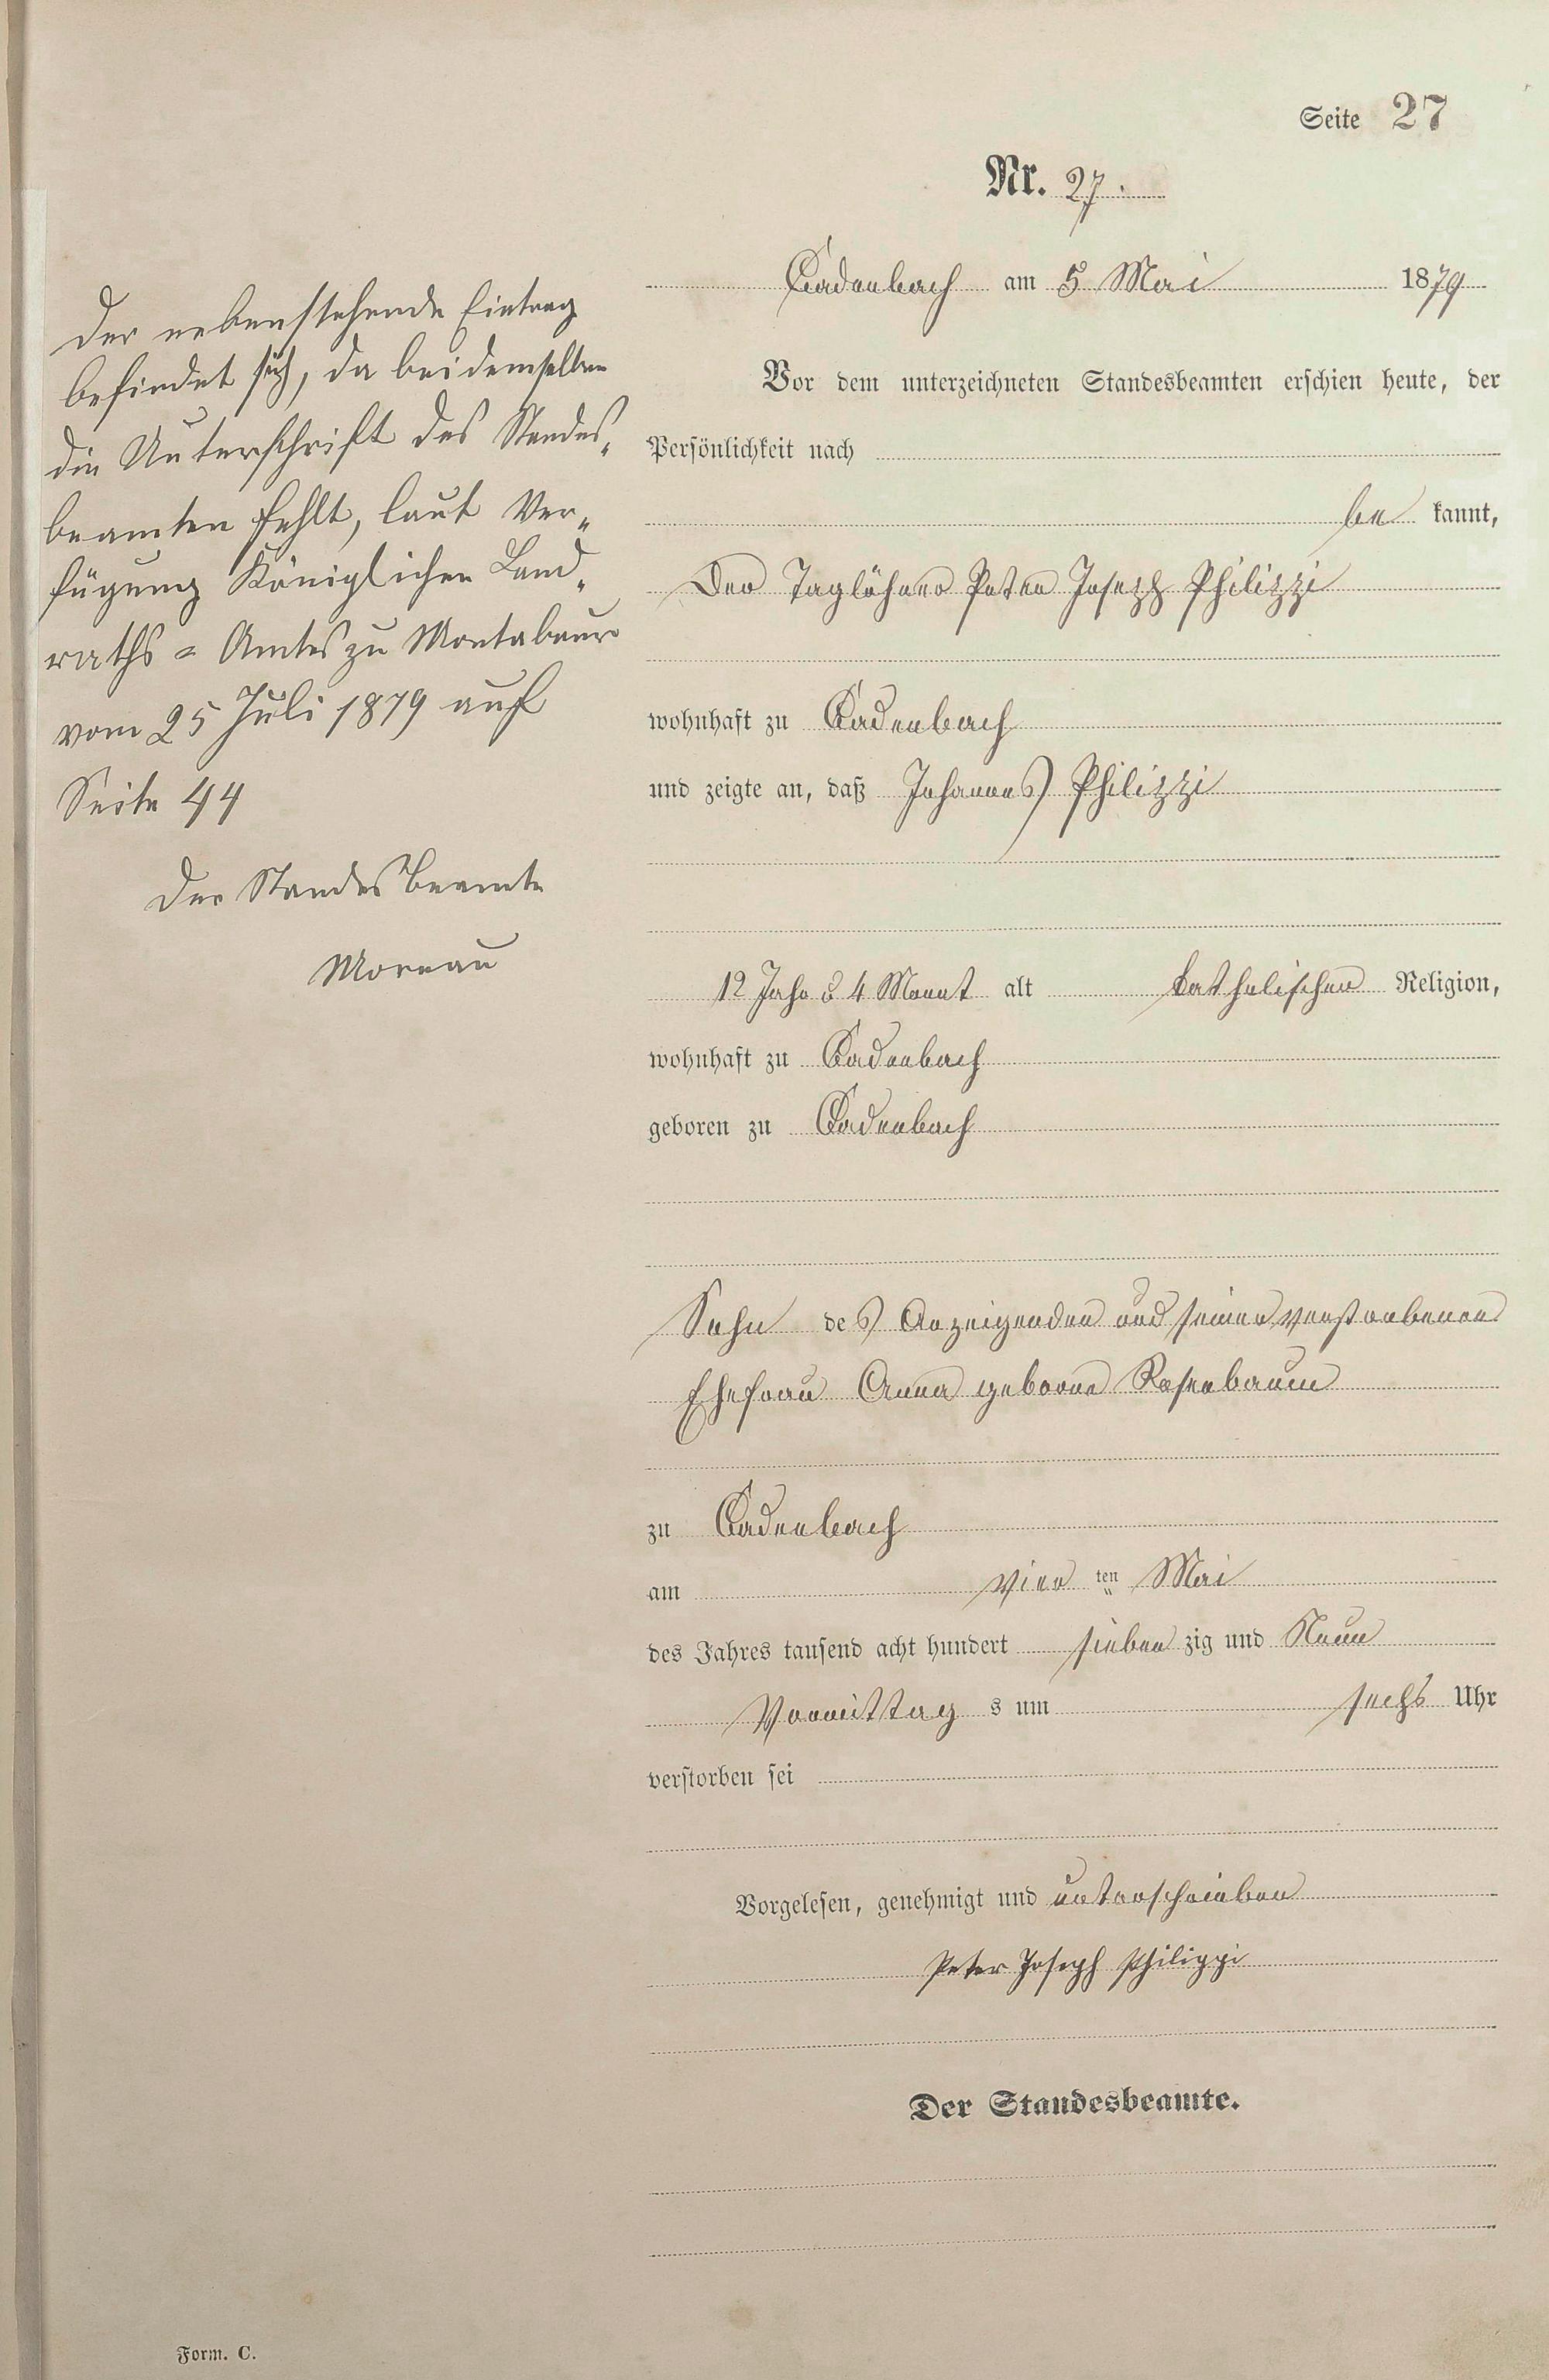 Seite 27
Nr. 27.
Cadenbach am 5 Mai 1879
Vor dem unterzeichneten Standesbeamten erschien heute, der
Persönlichkeit nach
be kannt,
Der Taglöhner Peter Joseph Philippi
wohnhaft zu Cadenbach
und zeigte an, daß Johannes Philippi
12 Jahr & 4 Monat alt katholischer Religion,
wohnhaft zu Cadenbach
geboren zu Cadenbach
Sohn des Anzeigenden und seiner verstorbenen
Ehefrau Anna geborne Rosenbaum
zu Cadenbach
am vier ten Mai
des Jahres tausend acht hundert sieben zig und Neun
Vormittag s um sechs Uhr
verstorben sei
Vorgelesen, genehmigt und unterschrieben
Peter Joseph Philippi
Der Standesbeamte.
Der nebenstehende Eintrag
befindet sich, da bei demselben
die Unterschrift des Standes-
beamten fehlt, laut Ver-
fügung Königlichen Land-
raths = Amtes zu Montabaur
vom 25 Juli 1879 auf
Seite 44
Der Standesbeamte
Moreau
Form. C.